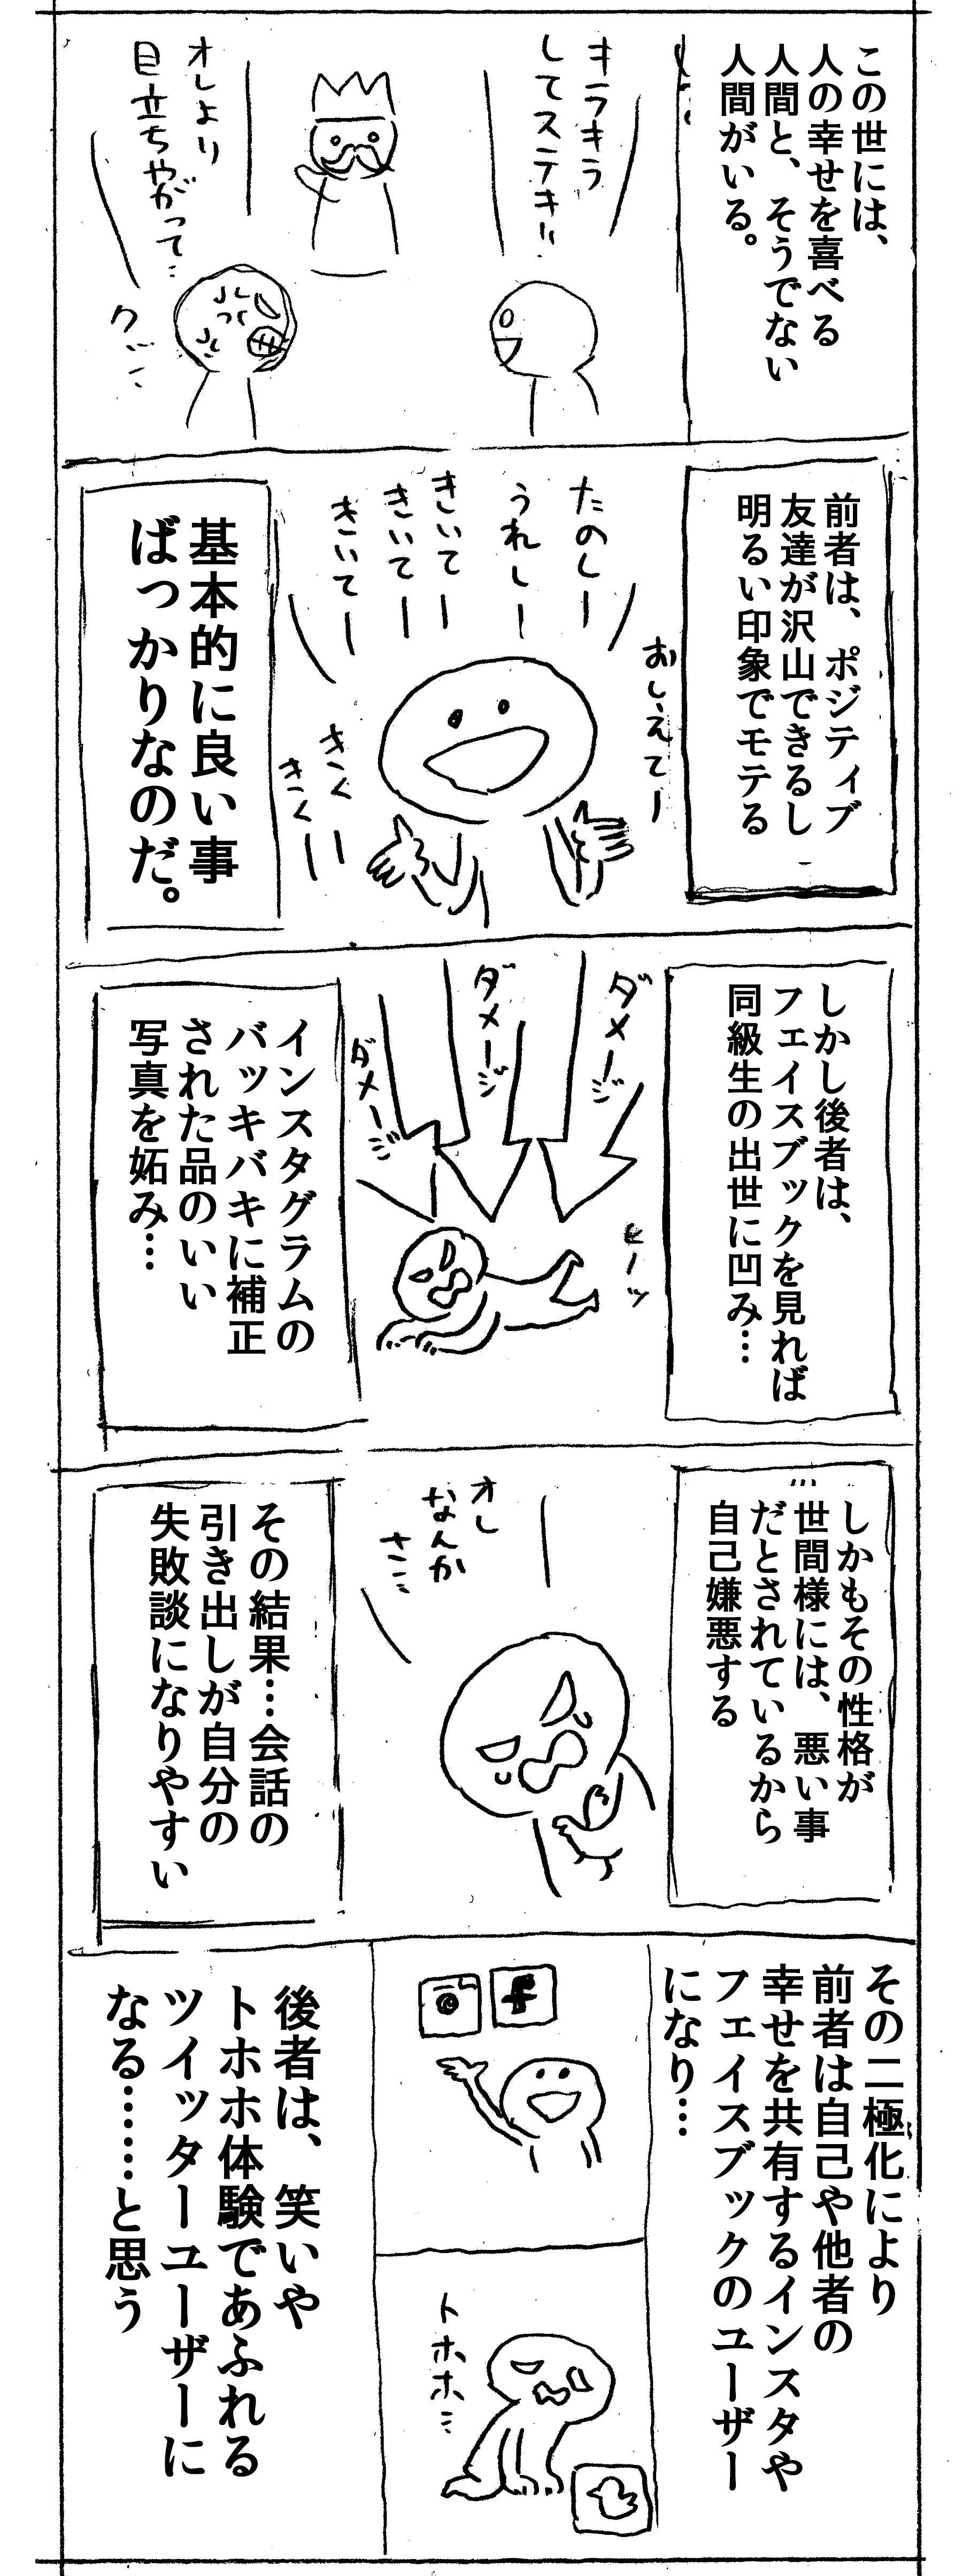 この世には、
人の幸せを喜べる
人間と、そうでない
人間がいる。
キラキラ
してステキ!!
オレより
目立ちやがって…
グ…
前者は、ポジティブ
友達が沢山できるし
明るい印象でモテる
おしえてー
たのしー
うれしー
きいてー
きいてー
きいてー
きくー
きくー
基本的に良い事
ばっかりなのだ。
しかし後者は、
フェイスブックを見れば
同級生の出世に凹み…
ダメージ
ダメージ
ダメージ
ヒーッ
インスタグラムの
バッキバキに補正
された品のいい
写真を妬み…
しかもその性格が
世間様には、悪い事
だとされているから
自己嫌悪する
オレ
なんか
さ…
その結果…会話の
引き出しが自分の
失敗談になりやすい
その二極化により
前者は自己や他者の
幸せを共有するインスタや
フェイスブックのユーザー
になり…
f
トホホ…
後者は、笑いや
トホホ体験であふれる
ツイッターユーザーに
なる……と思う